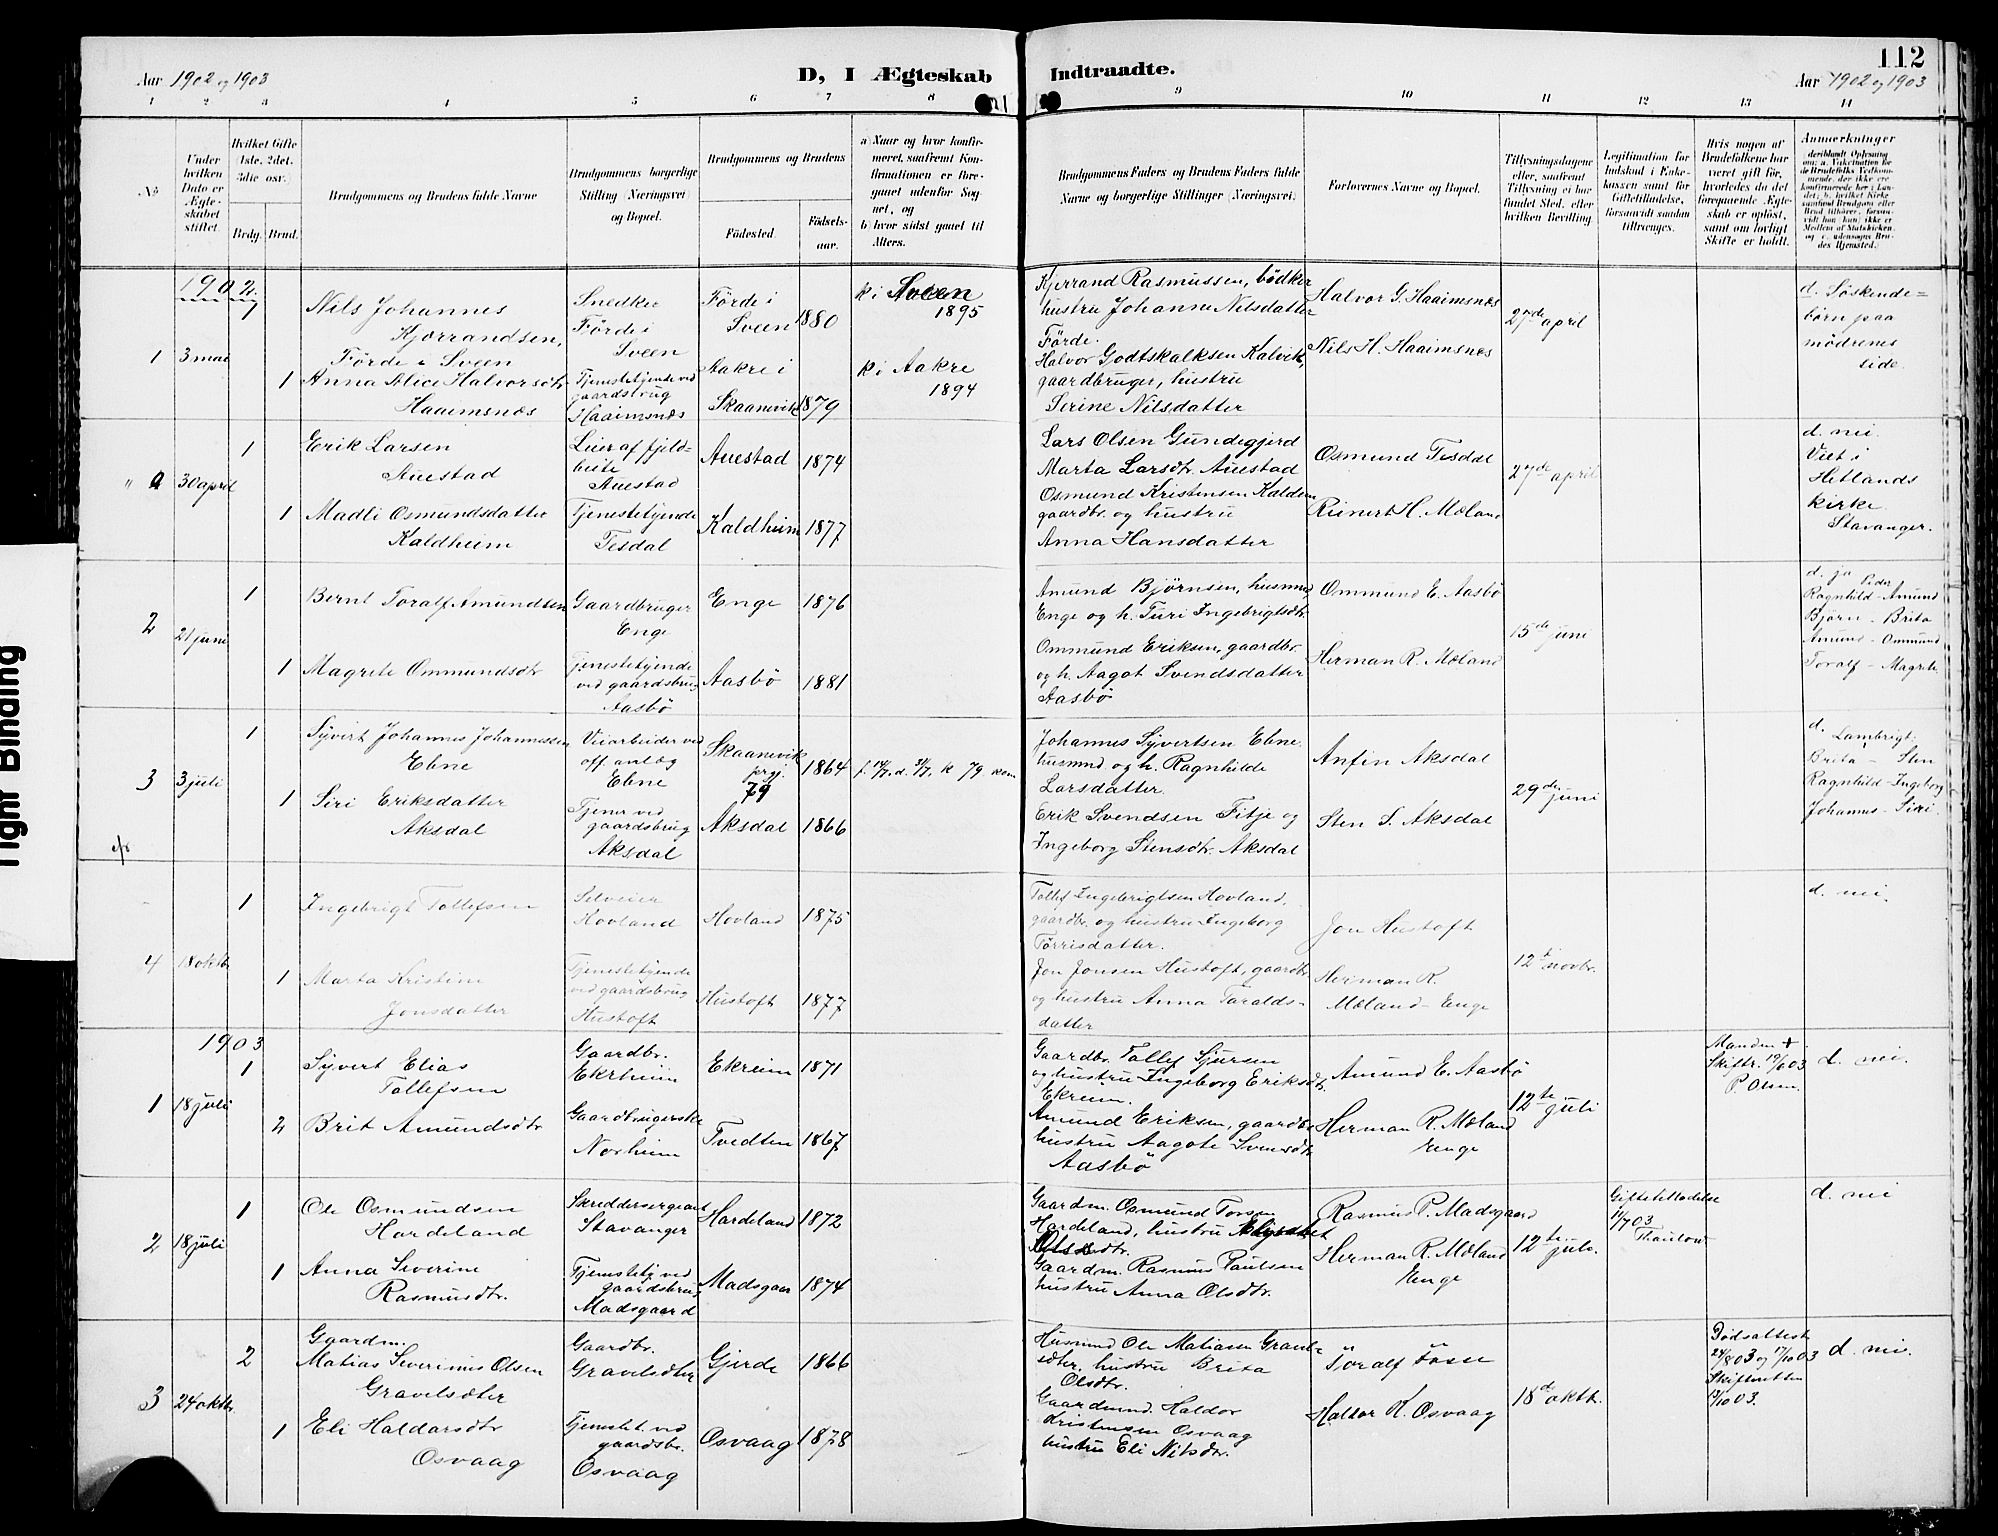 112
Aar 1902 og 1903
D, I Ægteskab Indtraadte.
Aar 1902 og 1903
1 2 3 4 5 6 7 8 9 10 11 12 13 14
No
Under hvilken Dato er Ægteskabet stiftet.
Hvilket Gifte 1ste, 2det, 3die osv.
Brdg. Brud.
Brudgommens og Brudens fulde Navne
Brudgommens borgerlige Stilling (Næringsvei) og Bopæl.
Brudgommens og Brudens
Fødested.
Fødselsaar.
a) Naar og hvor konfirmeret, saafremt Konfirmationen er foregaaet udenfor Sognet, og
b) hvor sidst gaaet til Alters.
Brudgommens Faders og Brudens Faders fulde Navne og borgerlige Stillinger (Næringsvei).
Forlovernes Navne og Bopæl.
Tillysningsdagene eller, saafremt Tillysning ei har fundet Sted, efter hvilken Bevilling.
Legitimation for Indskud i Enkekassen samt for Giftetilladelse, forsaavidt saadan tiltrænges.
Hvis nogen af Brudefolkene har været gift før, hvorledes da det foregaaende Ægteskab er opløst, samt om lovligt Skifte er holdt.
Anmerkninger
1902.
1 3 mai
1 Nils Johannes
Kjørrandsen,
Förde i Sveen
Snedker
Förde i
Sveen
Förde i
Sveen
1880
k i Sveen
1895
1 Anna Alice Halvorsdtr
Haaimsnæs
Tjenestetjende ved
gaardsbrug
Haaimsnæs
Aakre i
Skaanevik
1879
k i Aakre
1894
Kjerrand Rasmussen, bödker
hustru Johanna Nilsdatter
Förde.
Halvor Godtskalksen Kalvik,
gaardbruger, hustru
Serine Nilsdatter
Halvor G. Haaimsnæs
Nils H. Haaimsnæs
27de april
d. Søskende=
børn paa
mødrenes
side.
" 30 april
1 Erik Larsen
Auestad
Leier af fjeld-
beite
Auestad
Auestad
1874
1 Madli Osmundsdatter
Kaldheim
Tjenestetjende
Tesdal
Kaldheim
1877
Lars Olsen Gundegjerd
Marta Larsdtr. Auestad
Osmund Kristensen Kaldem
gaardbr. og hustru
Anna Hansdatter
Osmund Tesdal
Reinert H. Mæland
27de april
d. nei.
Viet i
Hetlands
kirke
Stavanger.
2 21 juni
1 Bernt Toralf Amundsen
Gaardbruger
Enge
Enge
1876
1 Magrete Ommundsdtr
Tjenestetjende
ved gaardsbrug
Aasbö
Aasbö
1881
Amund Bjørnsen, husmnd,
Enge og h. Turi Ingebrigtsdtr.
Ommund Eriksen, gaardbr
og h. Aagot Svendsdatter
Aasbö
Ommund E. Aasbö
Herman R. Mæland
15de juni
d. ja
Peder
Ragnhild - Amund
Bjørn - Brita
Amund - Ommund
Toralf - Magrete
3 3 juli
1 Syvert Johannes Johannessen
Ebne
Veiarbeider ved
off. anlæg
Ebne
Skaanevik
prgj.
79
1864
f. 14/7. d. 31/7. k 79 kom
1 Siri Eriksdatter
Aksdal
Tjener ved
gaardsbrug
Aksdal
Aksdal
1866
Johannes Syvertsen Ebne
husmnd og h. Ragnhilde
Larsdatter.
Erik Svendsen Fitje og
Ingeborg Stensdtr. Aksdal
Anfin Aksdal
Sten S. Aksdal
29de juni
d.
Lambrigt.
Brita - Sten
Ragnhild - Ingeborg
Johannes - Siri.
4 18 oktbr
1 Ingebrigt Tollefsen
Selveier
Hovland
Hovland
1875
1 Marta Kristine
Jonsdatter
Tjenestetjende
ved gaardsbrug
Hustoft
Hustoft
1877
Tollef Ingebrigtsen Hovland,
gaardbr. og hustru Ingeborg
Torrisdatter.
Jon Jonsen Hustoft, gaardbr
og hustru Anna Taralds-
datter
Jon Hustoft
Herman R.
Mæland - Enge
12te novbr.
d. nei.
1903
1 18 juli
1 Syvert Elias
Tollefsen
Gaardbr.
Ekrheim
Ekreim
1871
2 Brit Amundsdtr
Gaardbrugerske
Norheim
Tvedten
1867
Gaardbr. Tollef Sjursen
og hustru Ingeborg Eriksdt.
Ekreim.
Amund Eriksen, gaardbr
hustru Aagote Svensdtr
Aasbö
Amund E. Aasbö
Herman R. Mæland
Enge
12te juli
Manden +
Skiftr. 19/6 03
P. Olsen.
d. nei.
2 18 juli
1 Ole Osmundsen
Hardeland
Skreddersergeant
Stavanger
Hardeland
1872
1 Anna Severine
Rasmusdtr.
Tjenestetj ved
gaardsbrug
Madsgaard
Madsgaar
1874
Gaardm. Osmund Torsen
Hardeland, hustru
Olsdtr.
Gaardm. Rasmus Paulsen
hustru Anna Olsdtr.
Rasmus P. Madsgaard
Herman R. Mæland
Enge
12te juli.
Giftetilladelse
11/7 03
Thaulow
d. nei
3 24 oktbr.
2 Gaardm.
Matias Severinus Olsen
Gravelsæter
Gaardbr.
Gravelsæter
Gjerde
1866
1 Eli Haldorsdtr
Osvaag
Tjenestet. ved
gaardsbr.
Osvaag
Osvaag
1878
Husmnd Ole Matiasen Gravel-
sæter, hustru Brita
Olsdtr.
Gaardmnd. Haldor
Kristensen Osvaag
hustru Eli Nilsdtr.
Toralf Fosse
Haldor K. Osvaag
18de oktbr.
Dødsattest
24/8 03 og 17/10 03
Skifteretten
13/10 03.
d. nei.
Tight Binding